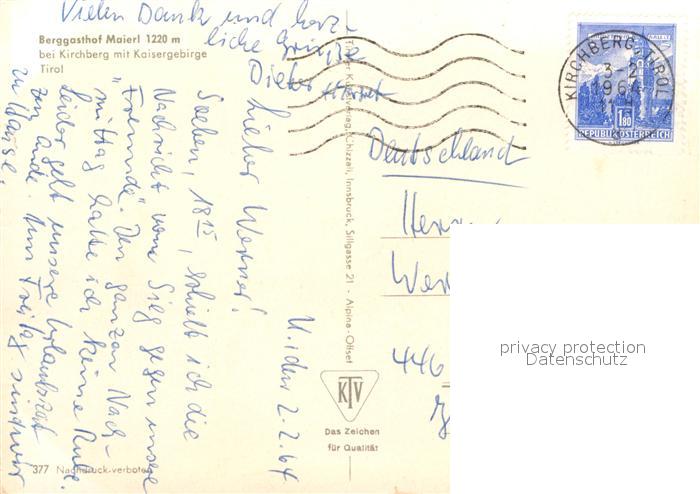 Berggasthof Maierl 1220 m
bei Kirchberg mit Kaisergebirge
Tirol
Vielen Dank und herz-
liche Grüße
Dieter
U. , den 2.2.64
Lieber Werner!
Soeben, 18 15, erhielt ich die
Nachricht vom Sieg gegen unsere
"Freunde". Den ganzen Nach-
mittag hatte ich keine Ruhe.
Leider geht unsere Urlaubszeit
zu Ende. Am Freitag sind wir
zu Hause.
Tiroler Kunstverlag Chizzali, Innsbruck, Sillgasse 21 · Alpina-Offset
KIRCHBERG, TIROL
3-2
1964
REPUBLIK ÖSTERREICH
1.80
Deutschland
Herrn
Wer
446
KTV
Das Zeichen
für Qualität
377 Nachdruck verboten
privacy protection
Datenschutz